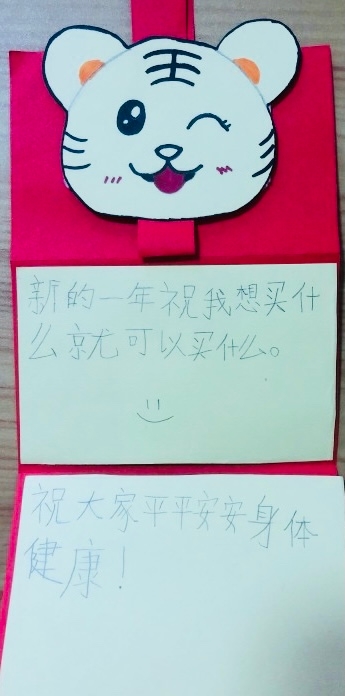 新的一年祝我想买什
么就可以买什么。
祝大家平平安安身体
健康！